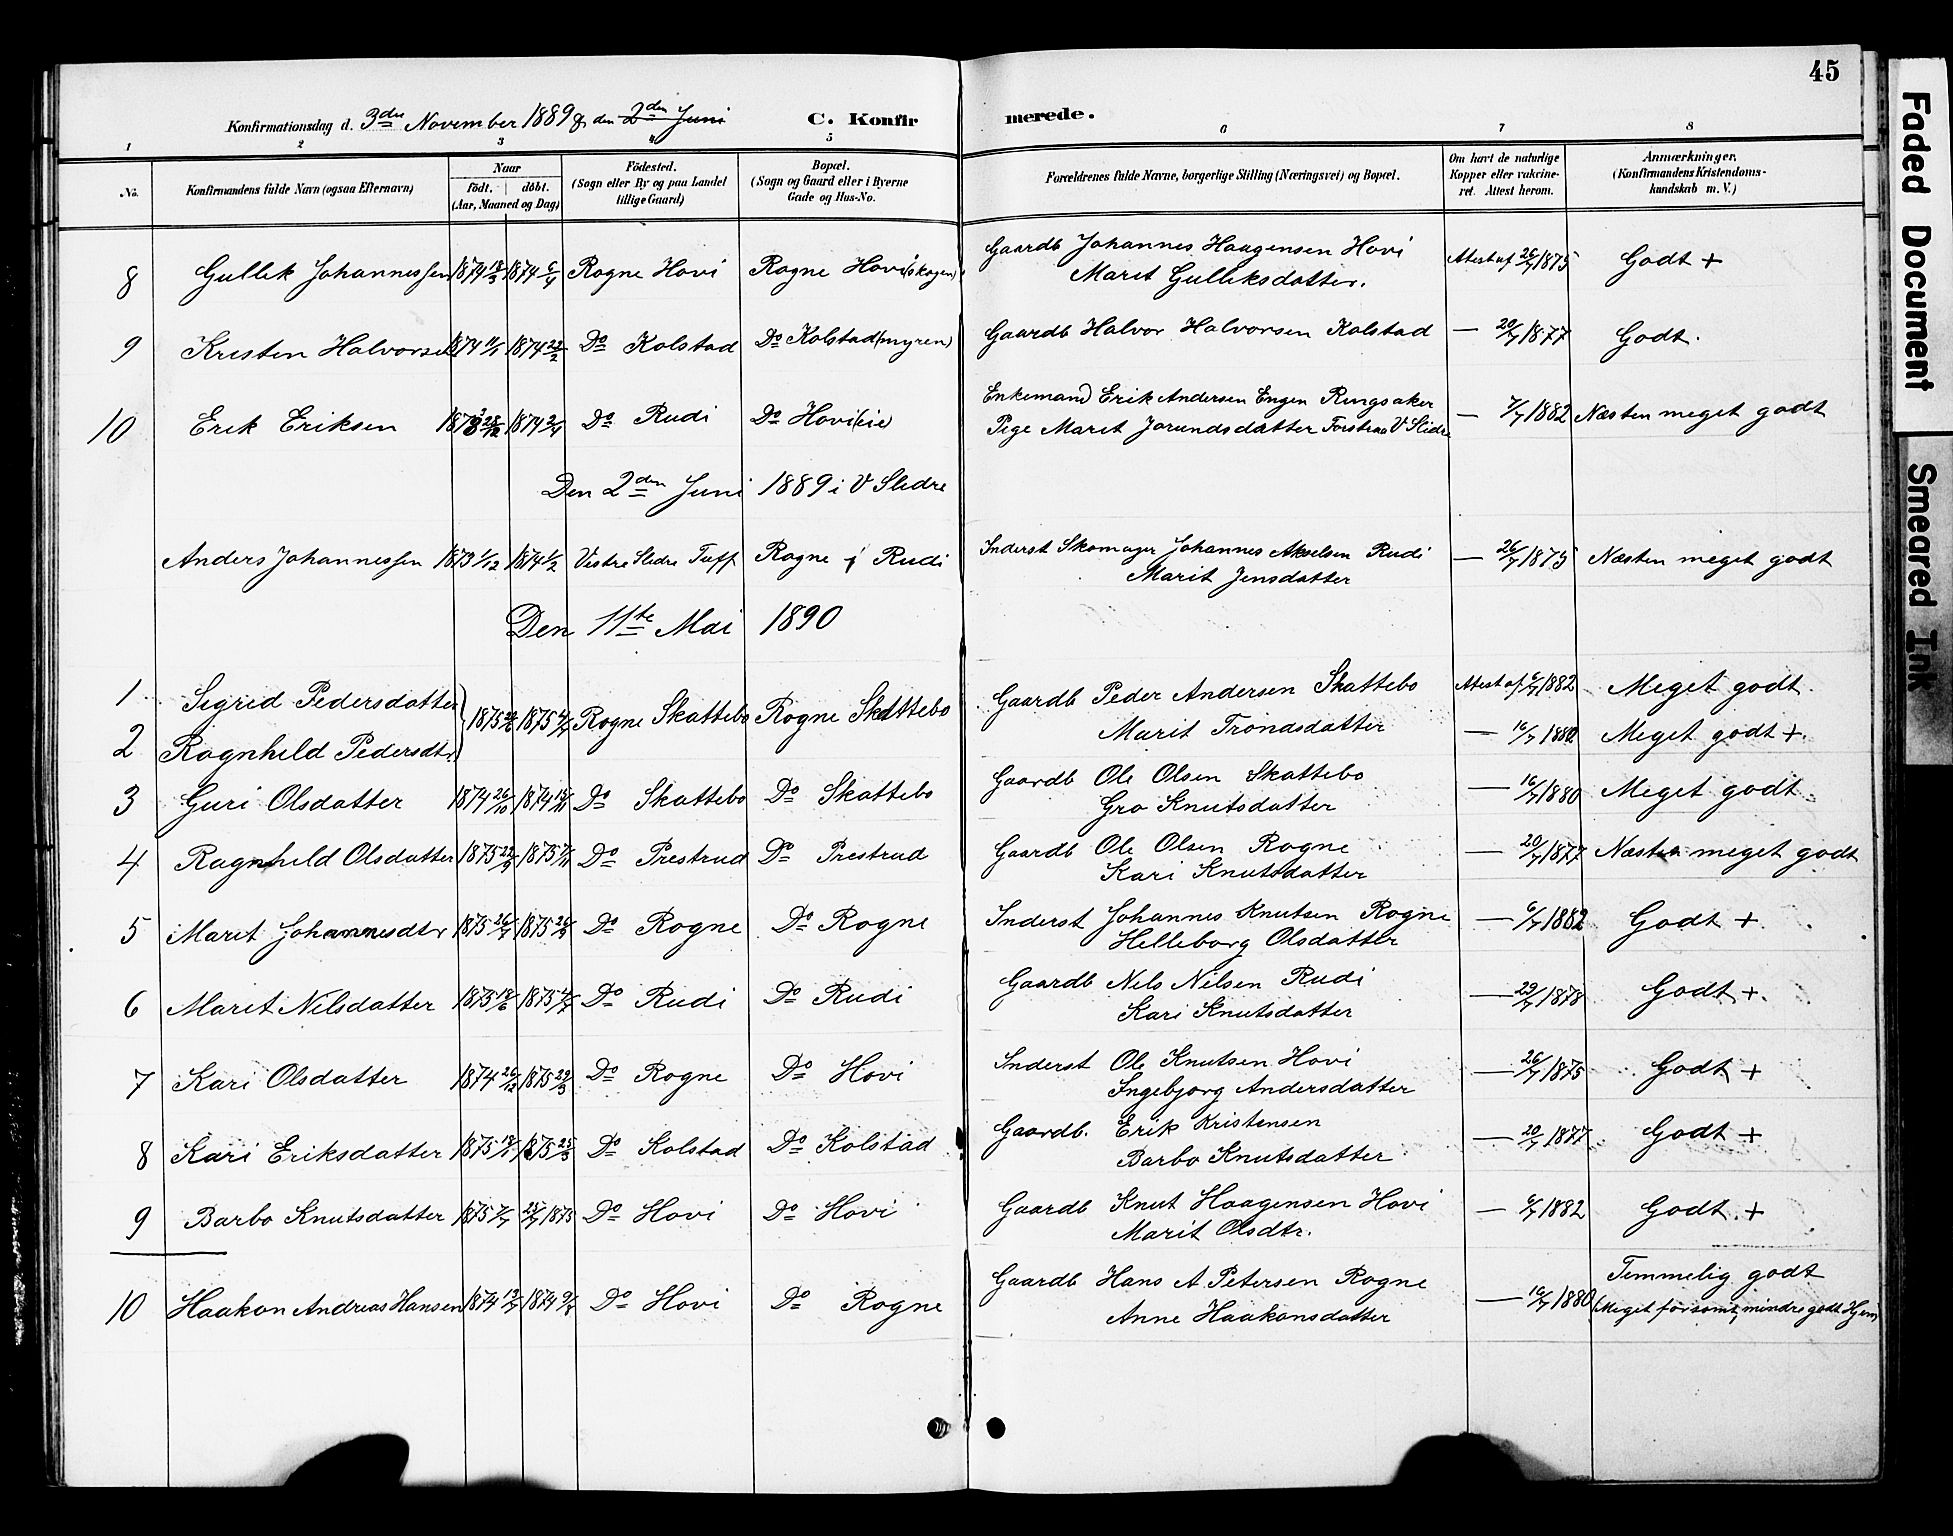 45
Konfirmationsdag d. 3die November 1889 & den 2den Juni C. Konfirmerede.
1 2 3 4 5 6 7 8
No. Konfirmandens fulde Navn (ogsaa Efternavn) Naar født. døbt. (Aar, Maaned og Dag) Fødested. (Sogn eller By og paa Landet tillige Gaard) Bopæl. (Sogn og Gaard eller i Byerne Gade og Hus-No. Forældrenes fulde Navne, borgerlige Stilling (Næringsvei) og Bopæl. Om havt de naturlige Kopper eller vakcineret. Attest herom. Anmærkninger. (Konfirmandens Kristendomskundskab m. V.)
8 Gullik Johannessen 1874 18/3 1874 6/4 Rogne Hovi Rogne Hovi (skogen) Gaardb Johannes Haagensen Hovi Attest af 26/7 1875 Godt +
Marit Gulliksdatter.
9 Kristen Halvorsen 1874 11/1 1874 22/2 Do Kolstad Do Kolstad (myren) Gaardb Halvor Halvorsen Kolstad — 20/7 1877 Godt.
10 Erik Eriksen 1873 28/12 1874 2/4 Do Rudi Do Hovi (eie) Enkemand Erik Andersen Engen Ringsaker — 7/7 1882 Næsten meget godt
Pige Marit Jorundsdatter Forstraa V Slidre
Den 2den Juni 1889 i V Slidre
Anders Johannessen 1873 1/12 1874 1/2 Vestre Slidre Tuff Rogne i Rudi Inderst Skomager Johannes Akselsen Rudi — 26/7 1875 Næsten meget godt
Marit Jensdatter
Den 11te Mai 1890
1 Sigrid Pedersdatter 1875 1875 Rogne Skattebo Rogne Skattebo Gaardb Peder Andersen Skattebo Attest af 6/7 1882 Meget godt.
2 Ragnhild Pedersdtr. Marit Trondsdatter — 16/7 1880 Meget godt +.
3 Guri Olsdatter 1874 26/10 1874 15/11 Do Skattebo Do Skattebo Gaardb Ole Olsen Skattebo — 16/7 1880 Meget godt.
Gro Knutsdatter
4 Ragnhild Olsdatter 1875 22/9 1875 7/11 Do Prestrud Do Prestrud Gaardb Ole Olsen Rogne — 20/7 1877 Næsten meget godt
Kari Knutsdatter
5 Marit Johannesdtr 1875 26/7 1875 26/9 Do Rogne Do Rogne Inderst Johannes Knutsen Rogne — 6/7 1882 Godt +
Helleborg Olsdatter
6 Marit Nilsdatter 1875 18/6 1875 Do Rudi Do Rudi Gaardb Nels Nilsen Rudi — 29/7 1878 Godt +.
Kari Knutsdatter
7 Kari Olsdatter 1874 26/12 1875 29/3 Do Rogne Do Hovi Inderst Ole Knutsen Hovi — 26/7 1875 Godt +
Ingebjorg Andersdatter
8 Kari Eriksdatter 1875 18/1 1875 25/3 Do Kolstad Do Kolstad Gaardb. Erik Kristensen — 20/7 1877 Godt +
Barbo Knutsdatter
9 Barbo Knutsdatter 1875 7/7 25/7 1875 Do Hovi Do Hovi Gaardb Knut Haagensen Hovi — 6/7 1882 Godt. +
Marit Olsdtr.
10 Haakon Andreas Hansen 1874 19/7 1874 Do Hovi Do Rogne Gaardb Hans A. Petersen Rogne — 16/7 1880 Temmelig godt
Anne Haakonsdatter (Meget forsømt, mindre godt Hjem)
Faded Document
Smeared Ink